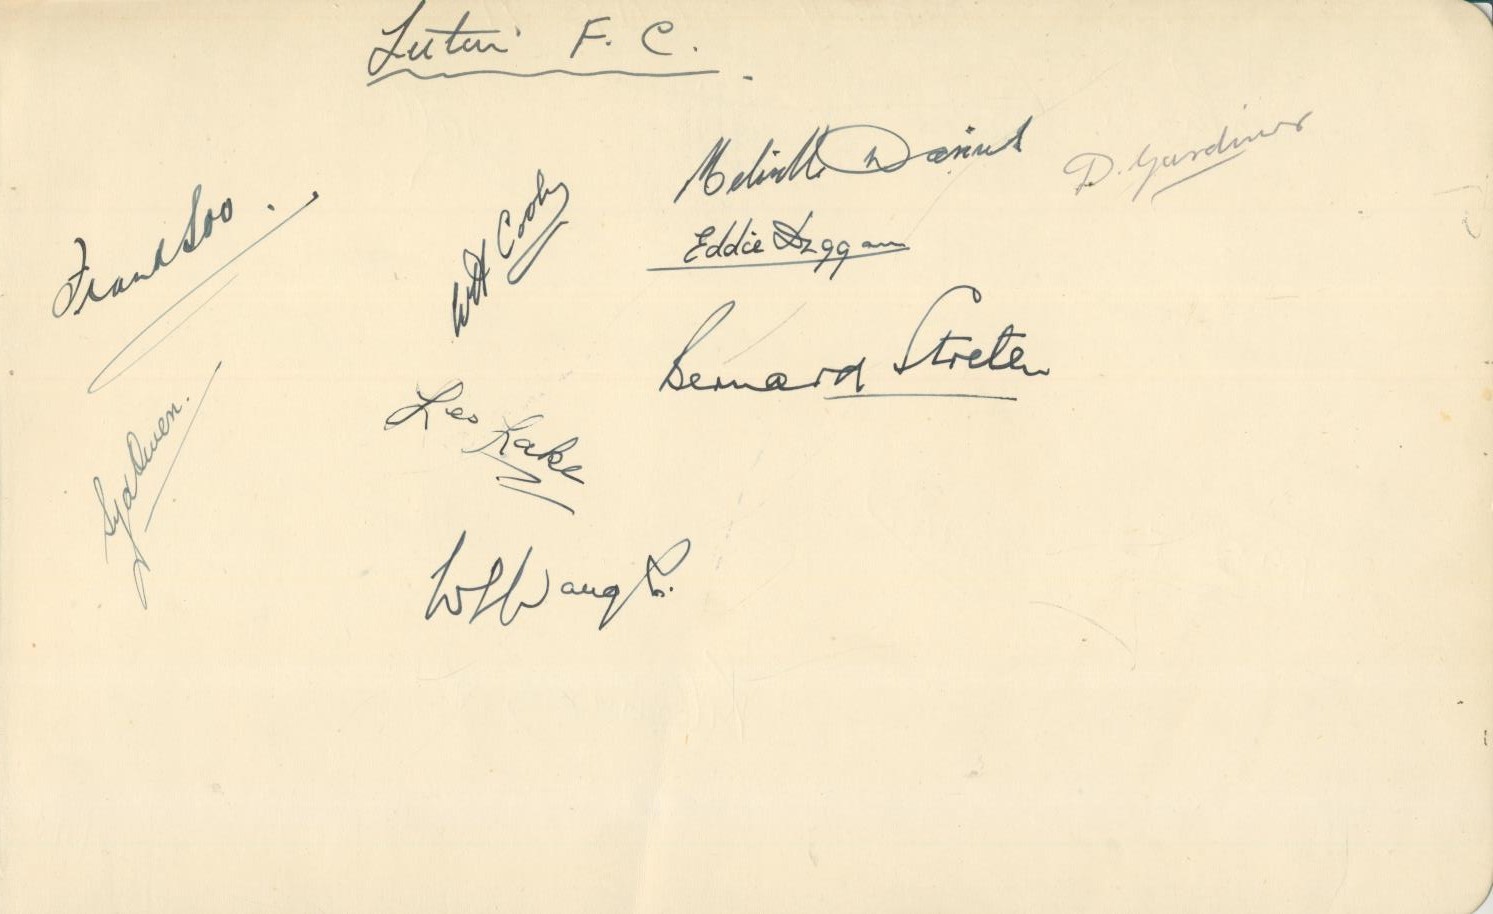 Luton F. C.
Melvill Daniel
D. Gardiner
Frank Soo.
W H Cooke
Eddie Duggan
Bernard Streten
Syd Owen.
Les Lake
W L Waugh.